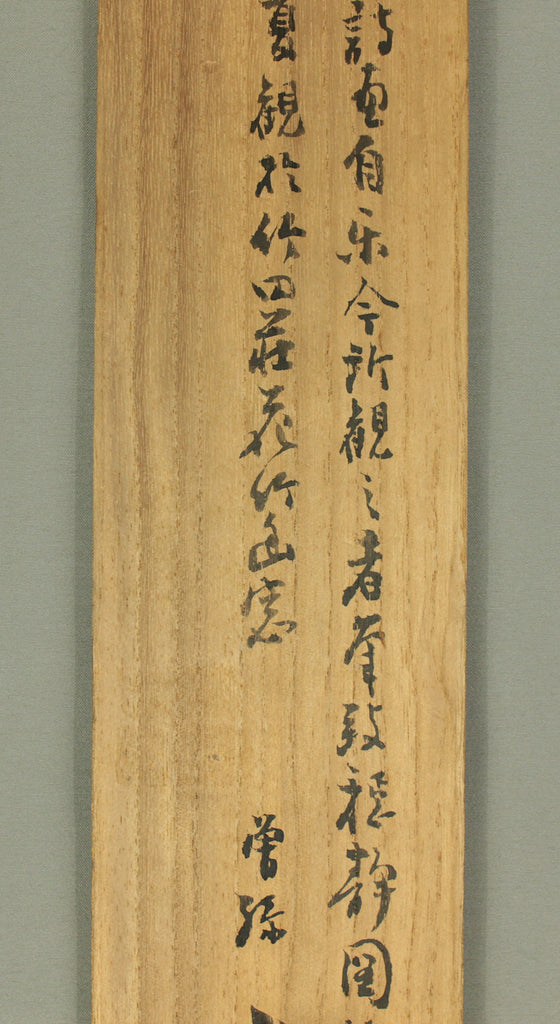 詩画自乐今所観之者筆致穏静図
夏観於竹田荘花竹幽窓 曽孫